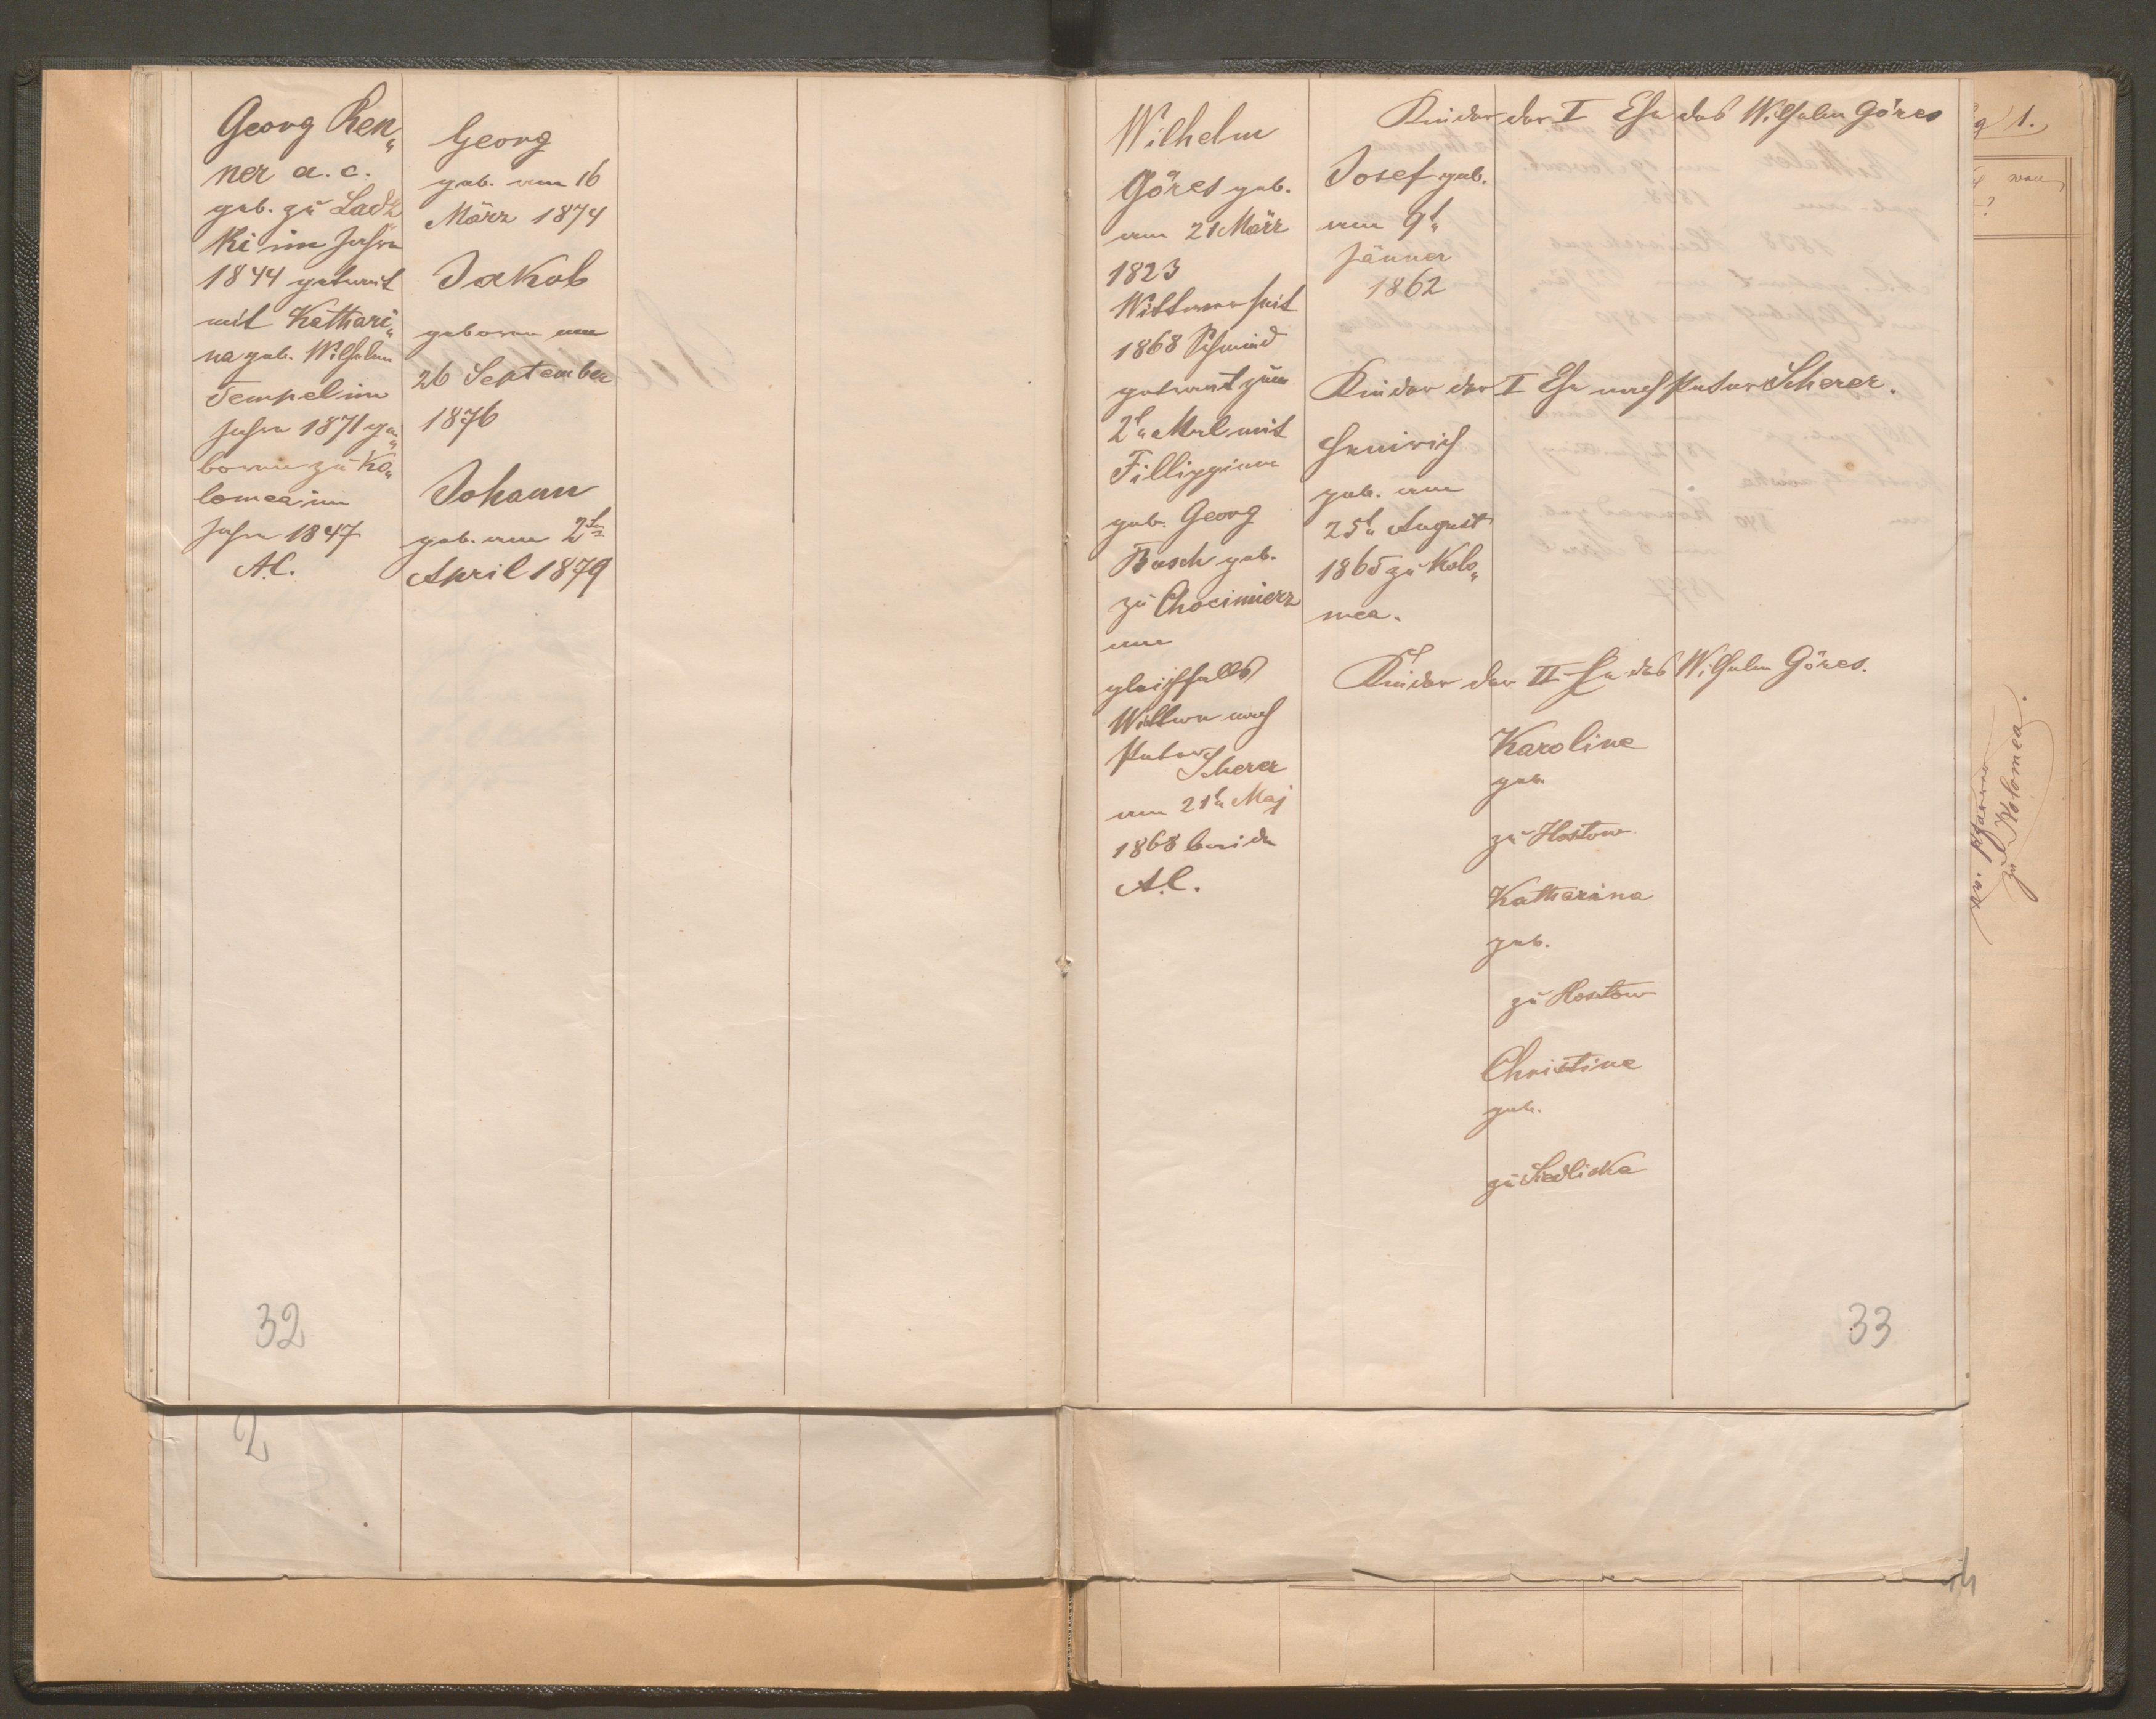 Georg Ren„
ner a. c.
geb. zu Ladz
ki im Jahre
1844 getraut
mit Kathari„
na geb. Wilhelm
Tempel im
Jahre 1871 ge„
boren zu Ko„
lomea im
Jahre 1847
A.C.
Georg
geb. am 16
März 1874
Jakob
geboren am
26 September
1876
Johann
geb. am 2ten
April 1879
32
2
Wilhelm
Göres geb.
am 21 März
1823
Wittwer seit
1868 Schmied
getraut zum
2t„ Mal mit
Fillippine
geb. Georg
Basch geb.
zu Chocimierz
am
gleichfalls
Wittwe nach
Peter Scherer
am 21t„ Maj
1868 beide
A.C.
Kinder der I Ehe des Wilhelm Göres
Josef geb.
am 9t„
Jänner
1862
Kinder der I Ehe nach Peter Scherer.
Heinrich
geb. am
25t„ August
1865 zu Kolo„
mea.
Kinder der II Ehe des Wilhelm Göres.
Karoline
geb.
zu Hostow
Katharina
geb.
zu Hostow
Christine
geb.
zu Siedliska
33
1.
ev. Pfarrer
zu Kolomea.